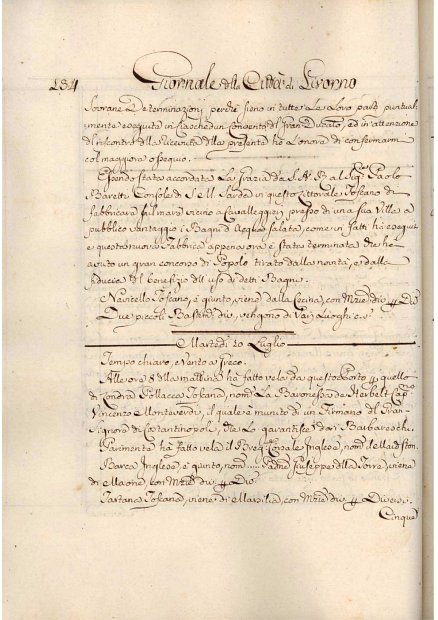 134 Giornale della Città di Livorno
Sovrane Determinazioni perche sieno in tutte Le Loro parti puntual-
mente eseguite in Ciaschedun Convento del Gran Ducato, ed in attenzione
del riscontro della ricevuta della presente hò L'onore di confermarmi
col maggiore ossequio.
Essendo stata accordata La grazia da S.A.R. al Sig.r Paolo
Baretti Console di S.M. Sarda in questo Littorale Toscano di
fabbricare sul mare vicino a Cavalleggieri, presso di una sua Villa a
pubblico vantaggio i Bagni di Acqua salata, come in fatti ha eseguit
e questa nuova Fabbrica appena ora è stata terminata che ha
avuto un gran concorso di Popolo tirato dalla novità, e dalla
fiducia del benefizio dell'uso di detti Bagni.
Navicello Toscano, è giunto, viene dalla Cecina, con Mrzie div
Due piccoli Bastim.ti div. vengono di Varj Luoghi
Martedì 20 Luglio
Tempo chiaro, e Vento a Greco.
Alle ore 8 della mattina ha fatto vela da questo Porto quello
di Londra Pollacca Toscana, nom.ta La Baronessa de Herbelt Cap.
Vincenzo Monteverde, il quale è munito di un Firmano del Gran
Signore di Costantinopoli, che Lo garantisce dai Barbareschi.
Parimente ha fatto vela il Breg.no Corsale Inglese, nom. del Maidston.
Barca Inglese, è giunto, nom. ..... Padne Giuseppe della Torre, viene
di Maone, con Mrzie div
Tartana Toscana, viene di Marsilia, con Mrzie div Diversi.
Cinque